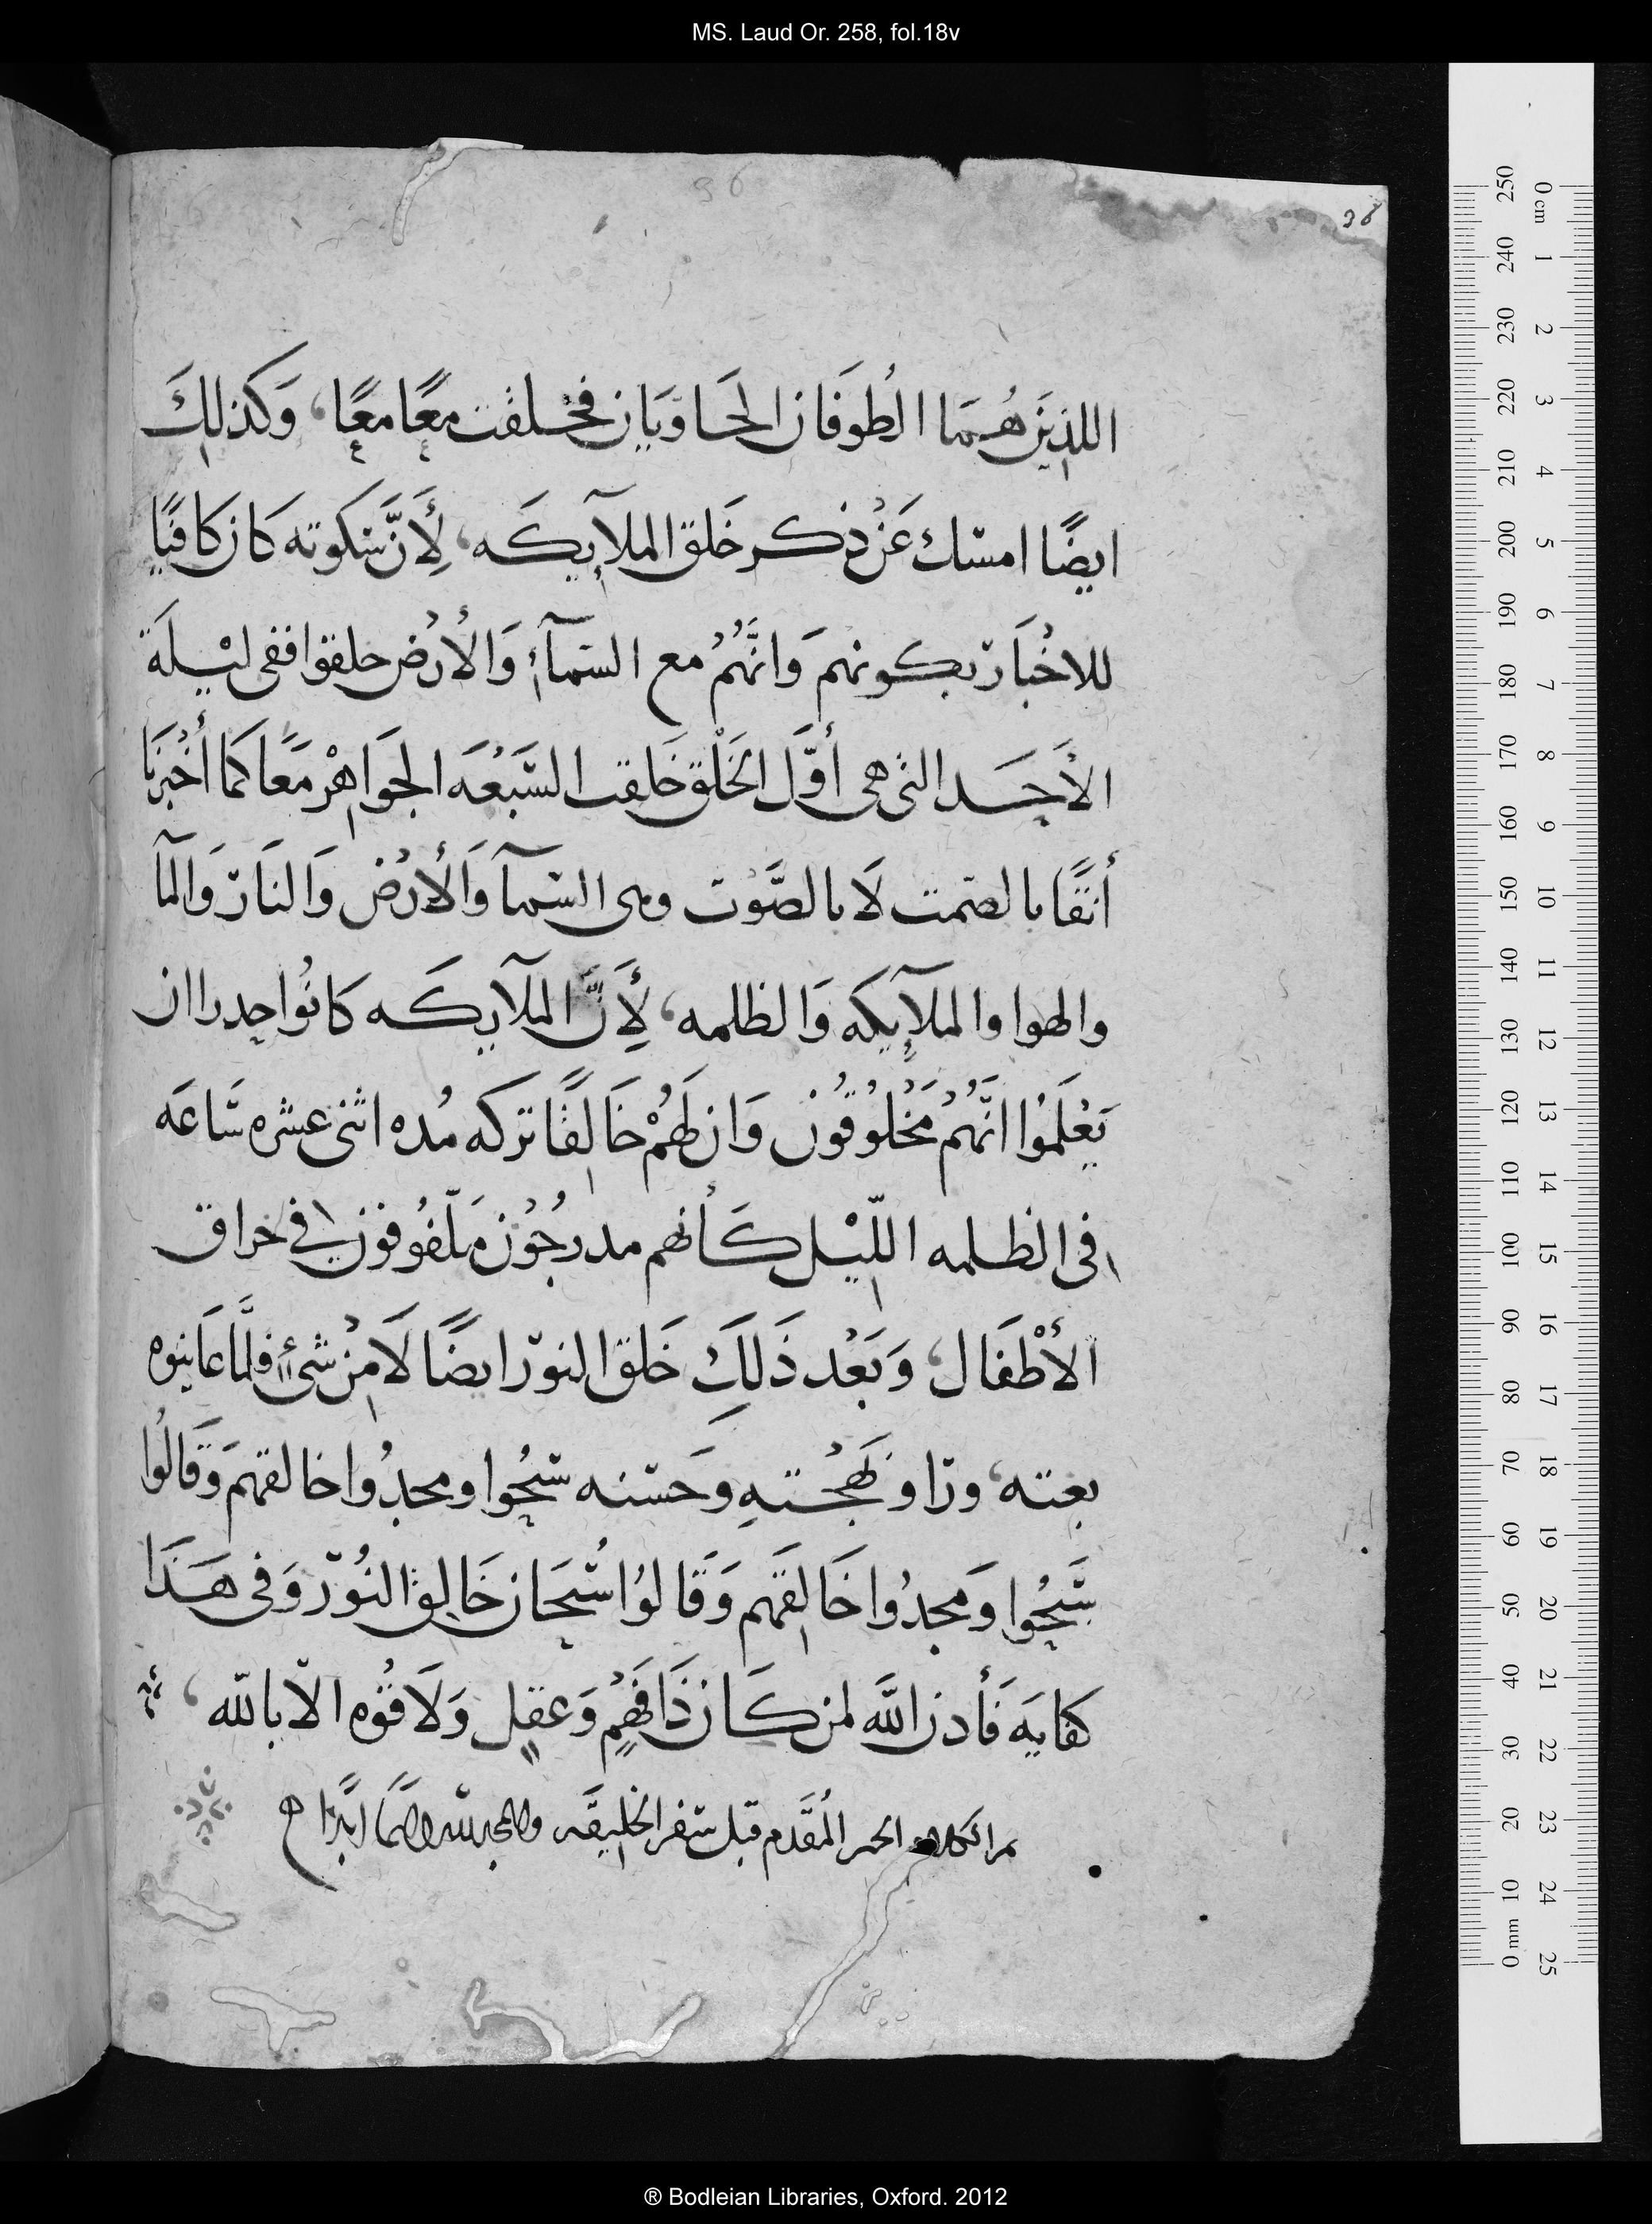 MS. Laud Or. 258, fol.18v
36
38
اللذِيَن هُمَا الُطوَفَان الحَاوَيَان فخلقت معًا معًا، وَكَذلِكَ
ايضًا امسك عَنْ ذِكر خَلق الملآيِكَه، لِأَنَّ سكوته كَان كَافيًا
للاخْبَار بكونهم وَانَّهُمُ مع السمآءِ وَالأرْض خلقوا ففى ليْلَة
الأَحَد التى هى أوَّل الخَلْق خَلقت السَّبْعَه الجَوَاهِرْ مَعًا كَمَا أَخْبَرَنا
أنفًا بالصمت لَا بالصَّوْت وهى السمآ وَالأَرْض وَالنَار وَالمآ
والهوا والملآيِكَه وَالظلمه، لِأَنَّ الملآيكَه كَانُوا جدرا ان
يَعْلَمُوْا انَّهُمُ مَخْلُوُقُوْن وَان لَهُمْ خَالِقًا تركه مُده اثنى عشره سَاعَه
فى الظلمه اللّيْلِ كَأنهم مدرجُوْن مَلّفُوفون فِي خراق
الأطْفَال، وَبَعْد ذَلِكَ خَلق النور ايضًا لَا مِنْ شىٍٔ فلَّمَا عَاينوه
بغته، ورَاو بَهْجتهِ وَحَسنه سبحُوا ومجدُوا خالقهمَ وَقَالُوا
سَبحُوا وَمجدُوا خَالِقَهم وَقَالوُا سُبحَان خَالِق النُوْر وَفى هَذَا
كفايَه فَأذن اللَّه لمن كَان ذَا فَهْمٍ وَعقلٍ وَلَا قُوه الّا باللّه،
المُقَّدم قبل سفر الخلِيقَه
0 cm 1 2 3 4 5 6 7 8 9 10 11 12 13 14 15 16 17 18 19 20 21 22 23 24 25
250 240 230 220 210 200 190 180 170 160 150 140 130 120 110 100 90 80 70 60 50 40 30 20 10 0 mm
® Bodleian Libraries, Oxford. 2012